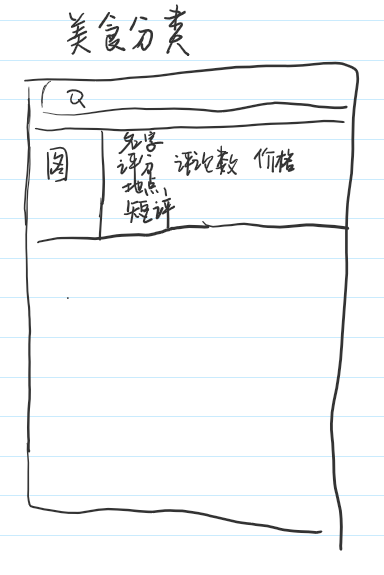 美食分类
图
名字
评分 评论数 价格
地点
短评